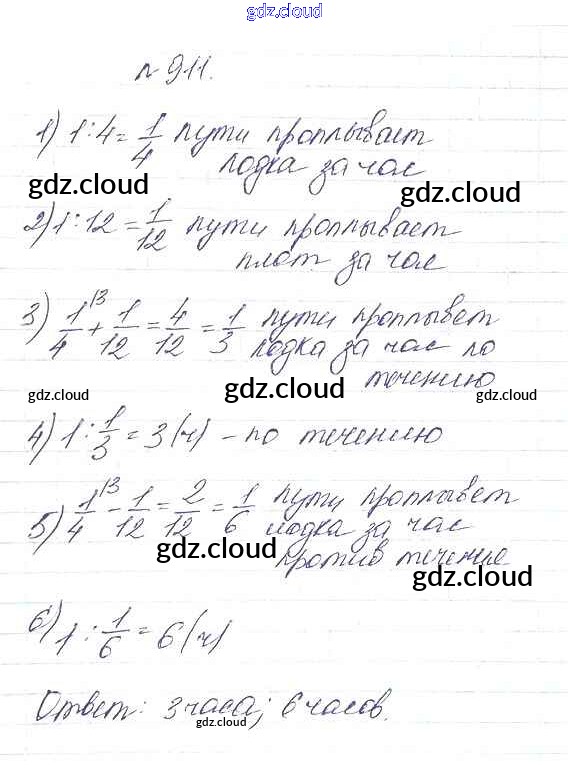 gdz.cloud
№ 911.
1) 1:4 = 1/4 пути проплывает
лодка за час
gdz.cloud gdz.cloud
2) 1:12 = 1/12 пути проплывает
плот за час
3) 1/4^{\3} + 1/12 = 4/12 = 1/3 пути проплывет
лодка за час по
течению
gdz.cloud gdz.cloud gdz.cloud
4) 1 : 1/3 = 3 (ч) – по течению
5) 1/4^{\3} - 1/12 = 2/12 = 1/6 пути проплывет
лодка за час
против течение
gdz.cloud gdz.cloud
6) 1 : 1/6 = 6 (ч)
Ответ: 3 часа; 6 часов.
gdz.cloud gdz.cloud